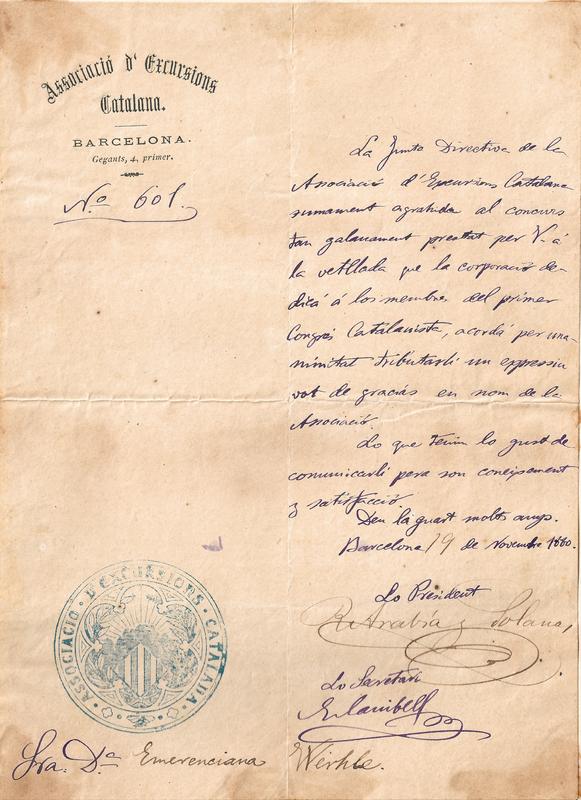 Associació d' Excursions
Catalana.
BARCELONA.
Gegants, 4, primer.
Nº 601.
La Junta Directiva de la
Associació d'Excursions Catalana
sumament agrahida al concurs
tan galanament prestat per V. á
la vetllada que la corporació de-
dicá á los membres del primer
Congrés Catalanista, acordá per una-
nimitat tributarli un expressiu
vot de gracias en nom de la
Associació.
Lo que tenim lo gust de
comunicarli pera son coneixement
y satisfacció.
Deu la guart molts anys.
Barcelona 19 de Novembre 1880.
Lo President
R. Arabía y Solanas
Lo Secretari
E. Canibell
ASSOCIACIÓ D'EXCURSIONS CATALANA
Sra. Dª Emerenciana Wehrle.